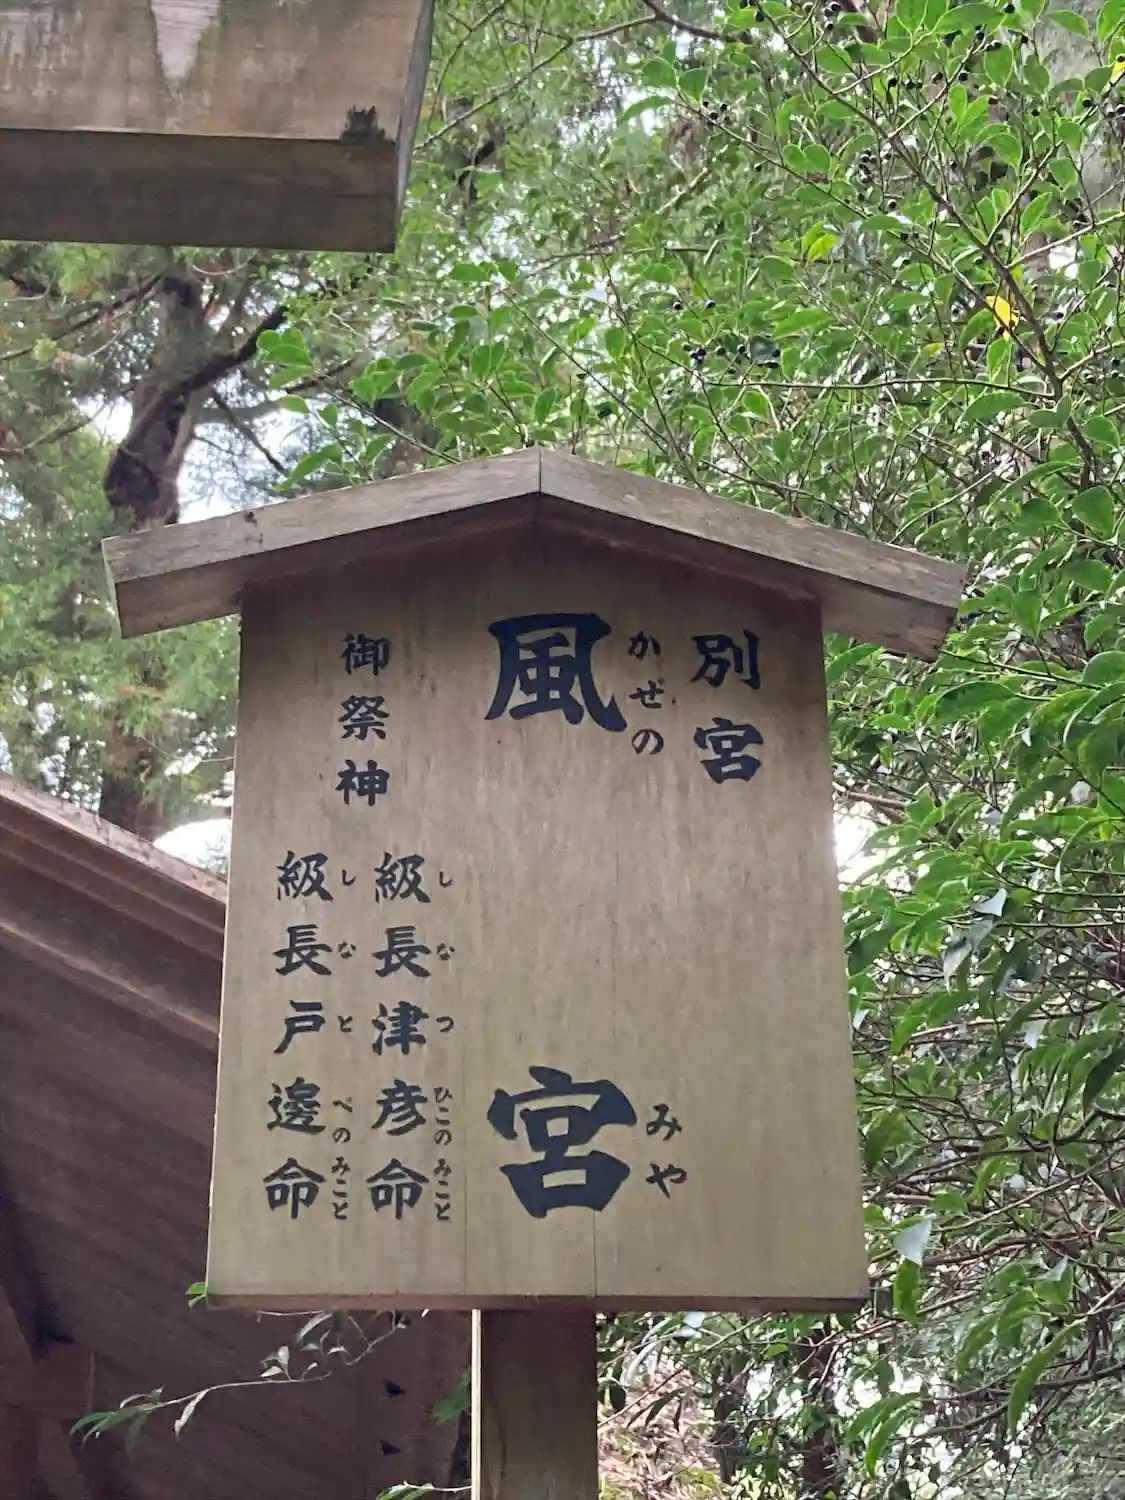 別宮
風宮
かぜの
みや
御祭神
級長津彦命
しなつひこのみこと
級長戸邊命
しなとべのみこと